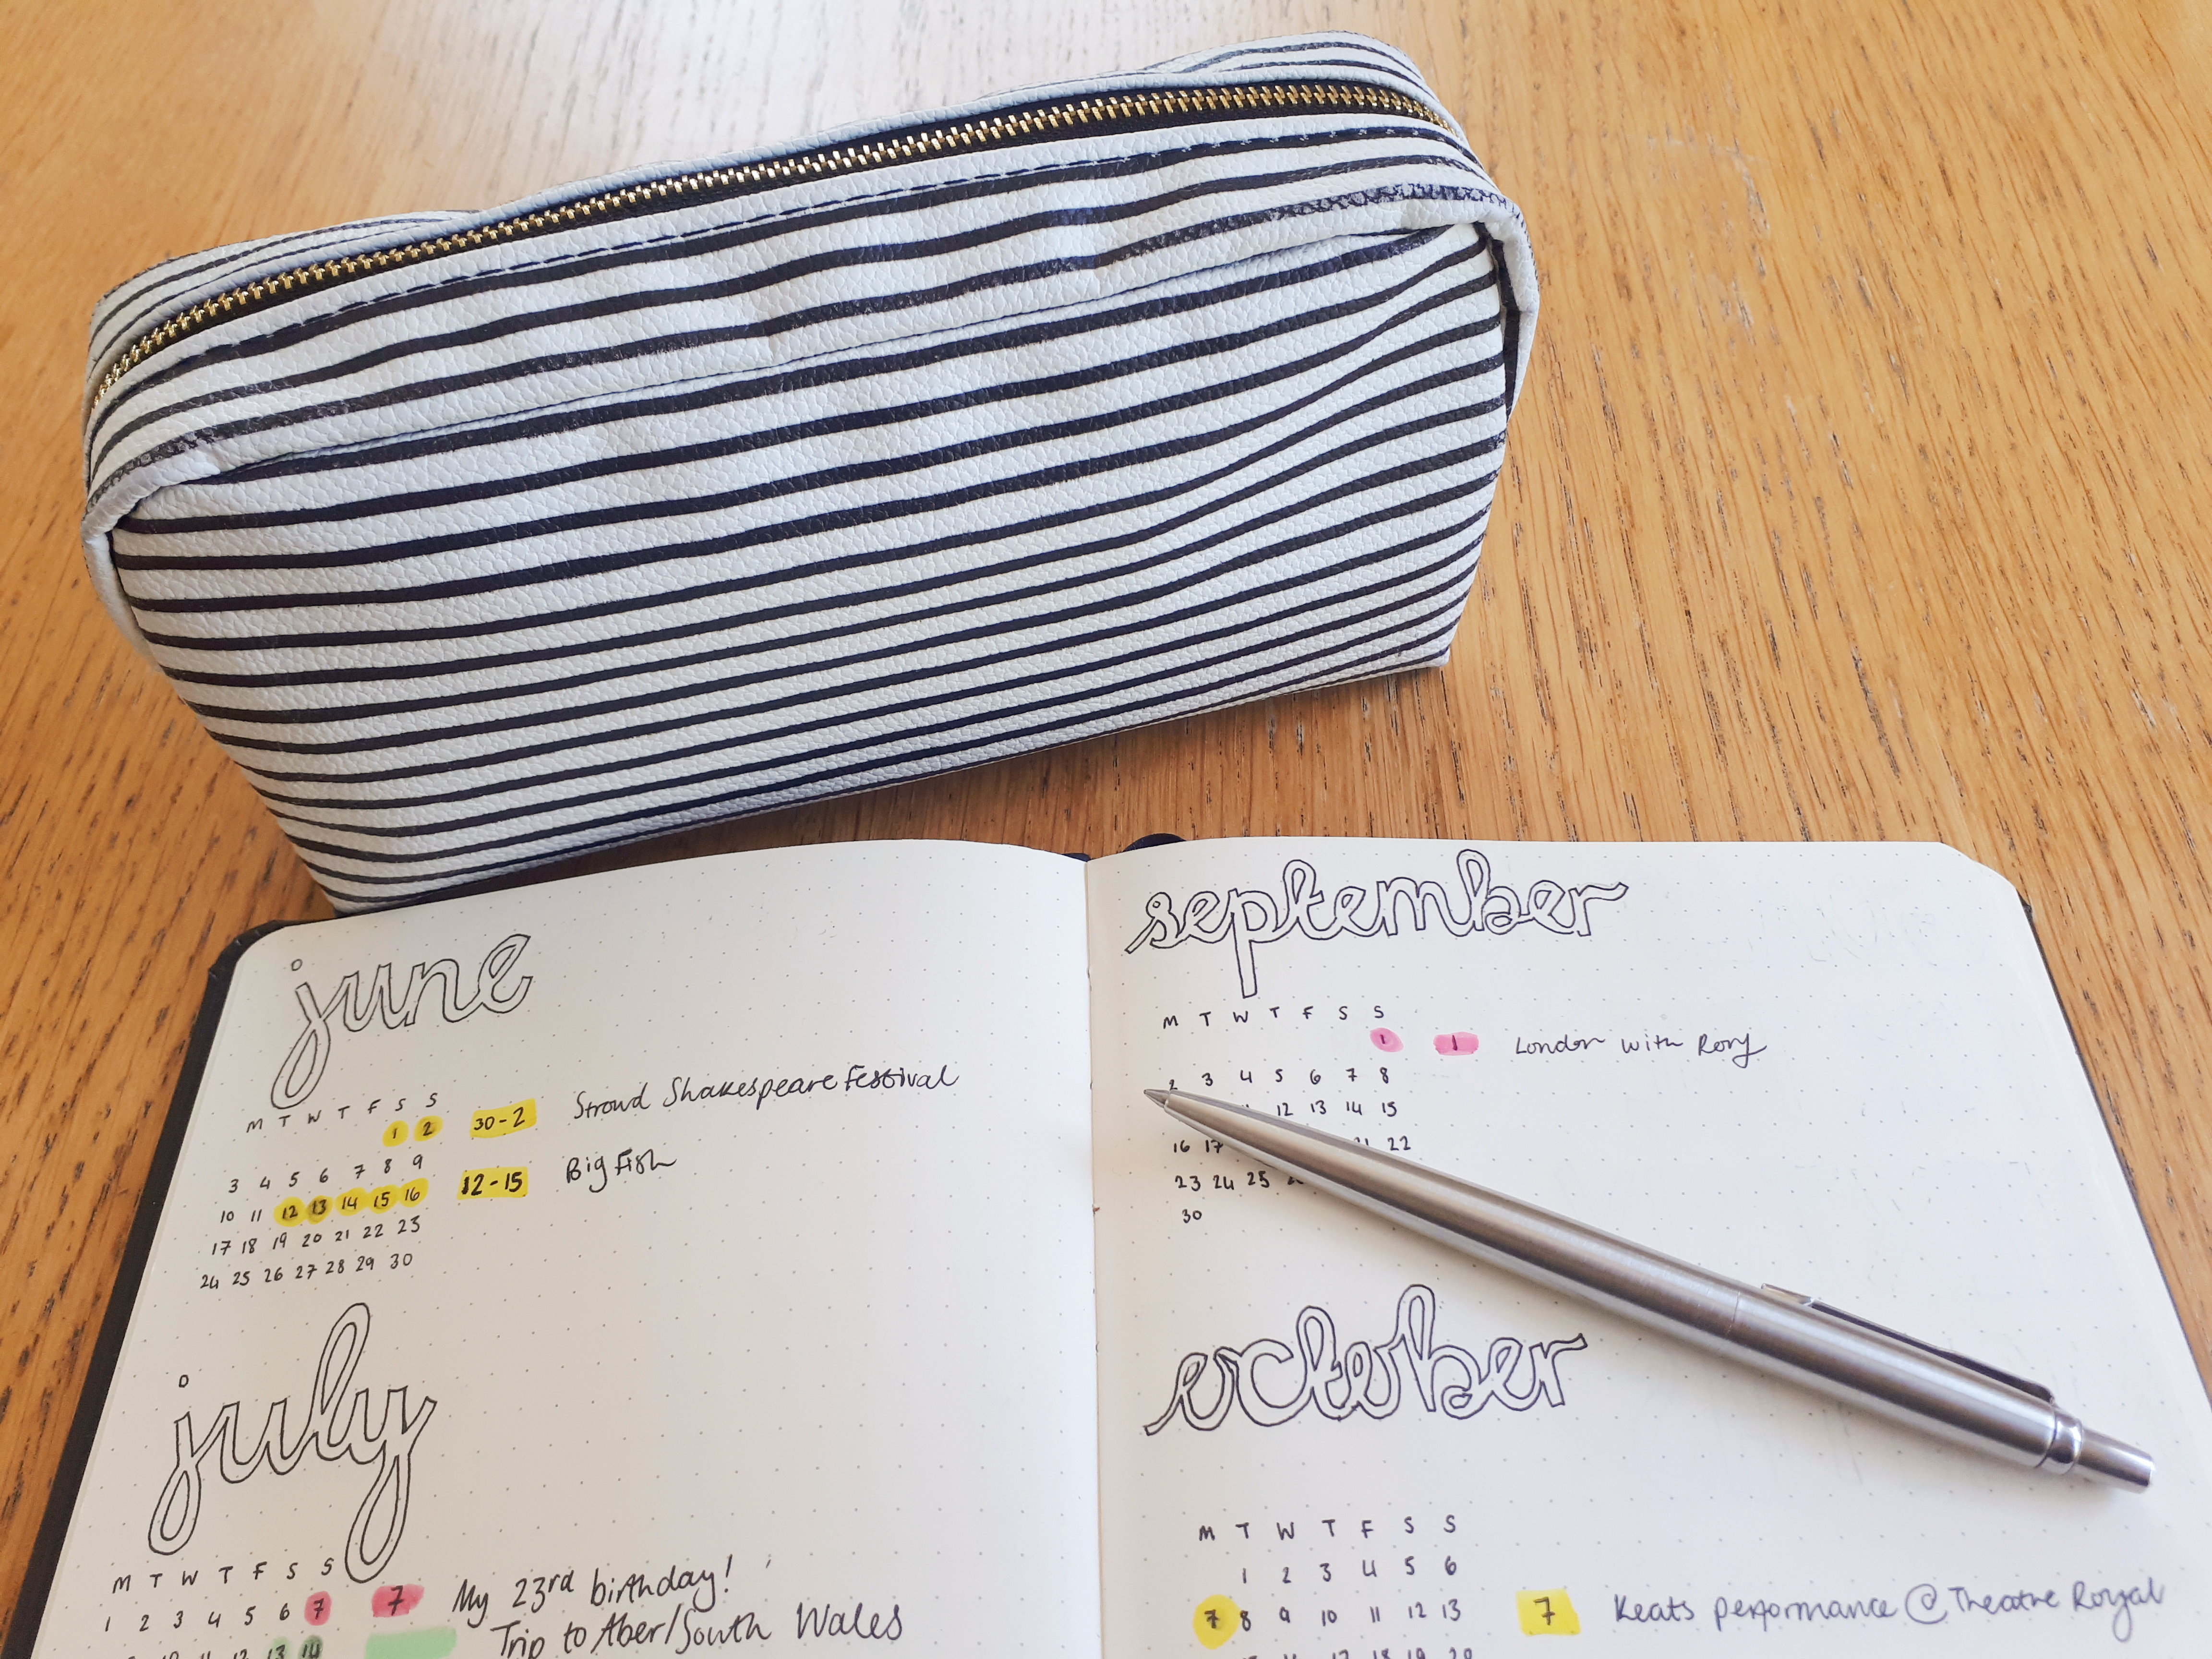 june
M T W T F S S
1 2
3 4 5 6 7 8 9
10 11 12 13 14 15 16
17 18 19 20 21 22 23
24 25 26 27 28 29 30
30-2 Stroud Shakespeare Festival
12-15 Big Fish
july
M T W T F S S
1 2 3 4 5 6 7
12 13 14
7 My 23rd birthday!
Trip to Aber/South Wales
september
M T W T F S S
1
2 3 4 5 6 7 8
12 13 14 15
16 17 22
23 24 25
30
1 London with Rory
october
M T W T F S S
1 2 3 4 5 6
7 8 9 10 11 12 13
17 18 19 20
7 Keats performance @ Theatre Royal